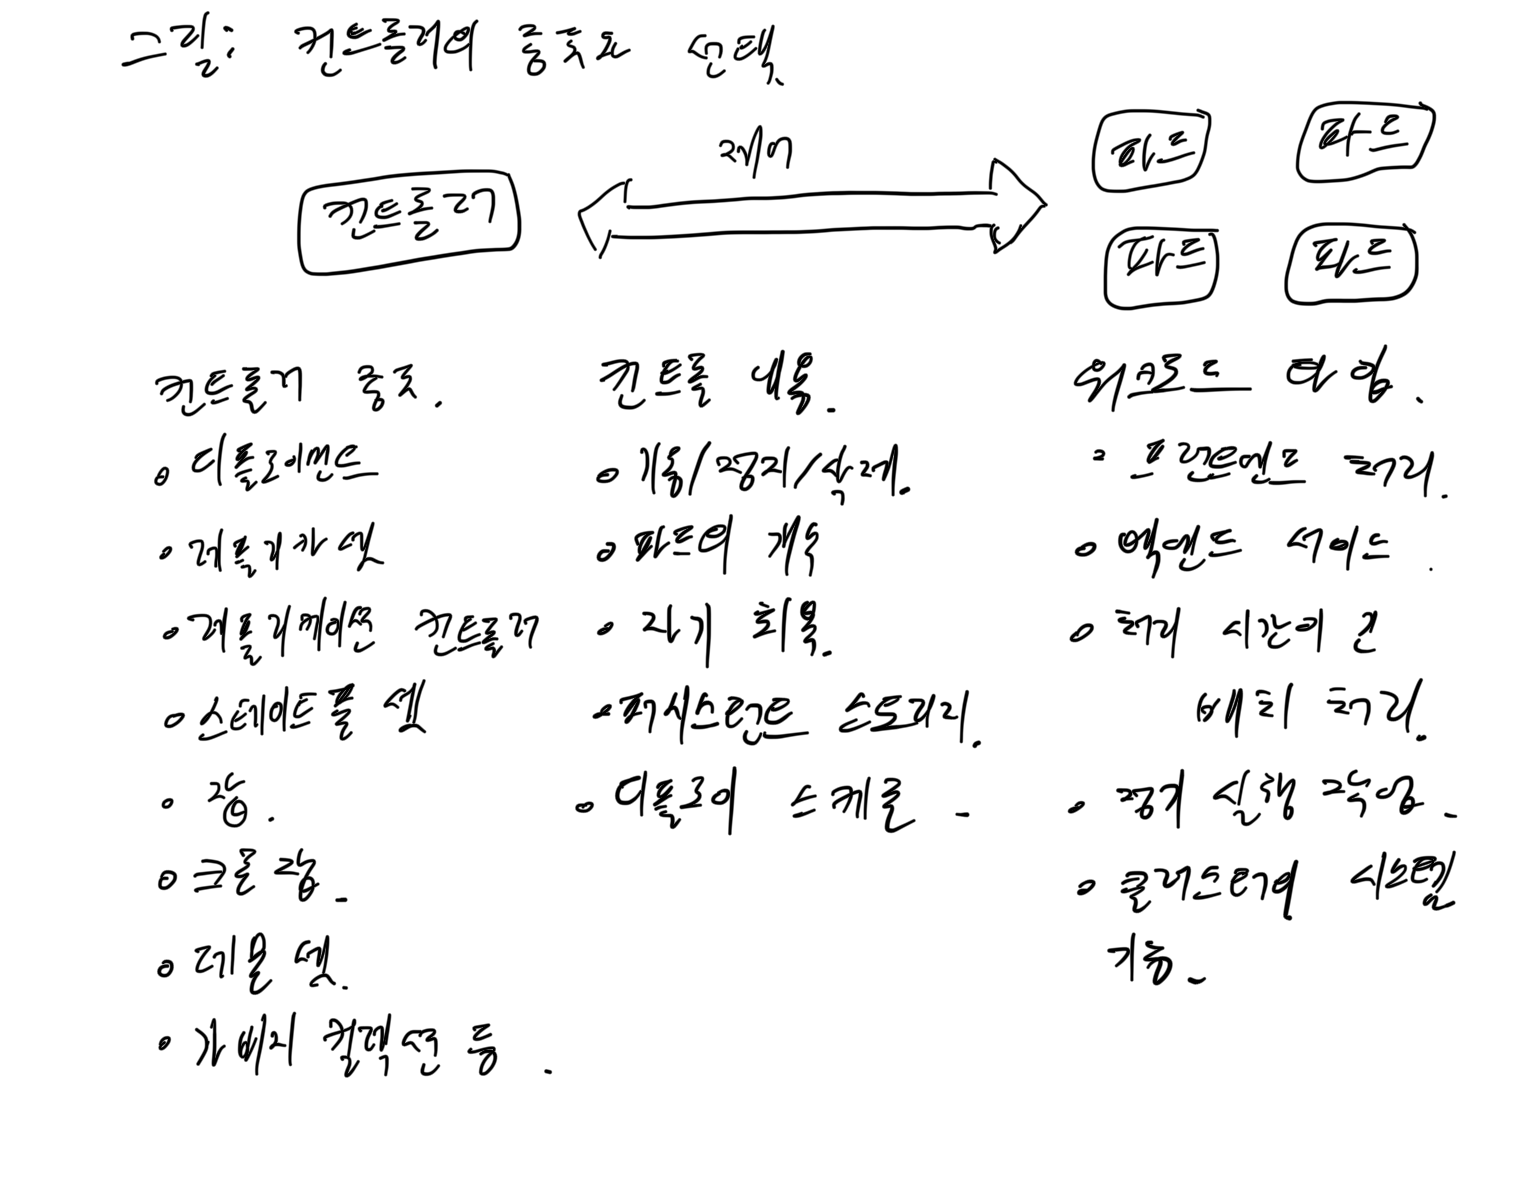 그림: 컨트롤러의 종류와 선택
제어
컨트롤러
파드
파드
파드
파드
컨트롤러 종류.
• 디플로이먼트
• 레플리카 셋
• 레플리케이션 컨트롤러
• 스테이트풀 셋
• 잡.
• 크론 잡.
• 데몬 셋.
• 가비지 컬렉션 등.
컨트롤 내용.
• 기동/정지/삭제.
• 파드의 개수
• 자기 회복.
• 퍼시스턴트 스토리지.
• 디플로이 스케일.
워크로드 타입.
• 프런트엔드 처리.
• 백엔드 사이드.
• 처리 시간이 긴
배치 처리.
• 정기 실행 작업.
• 클러스터의 시스템
기능.